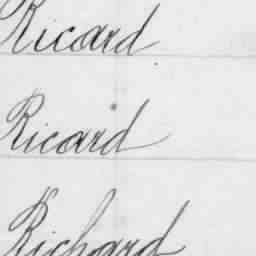 Ricard
Ricard
Richard